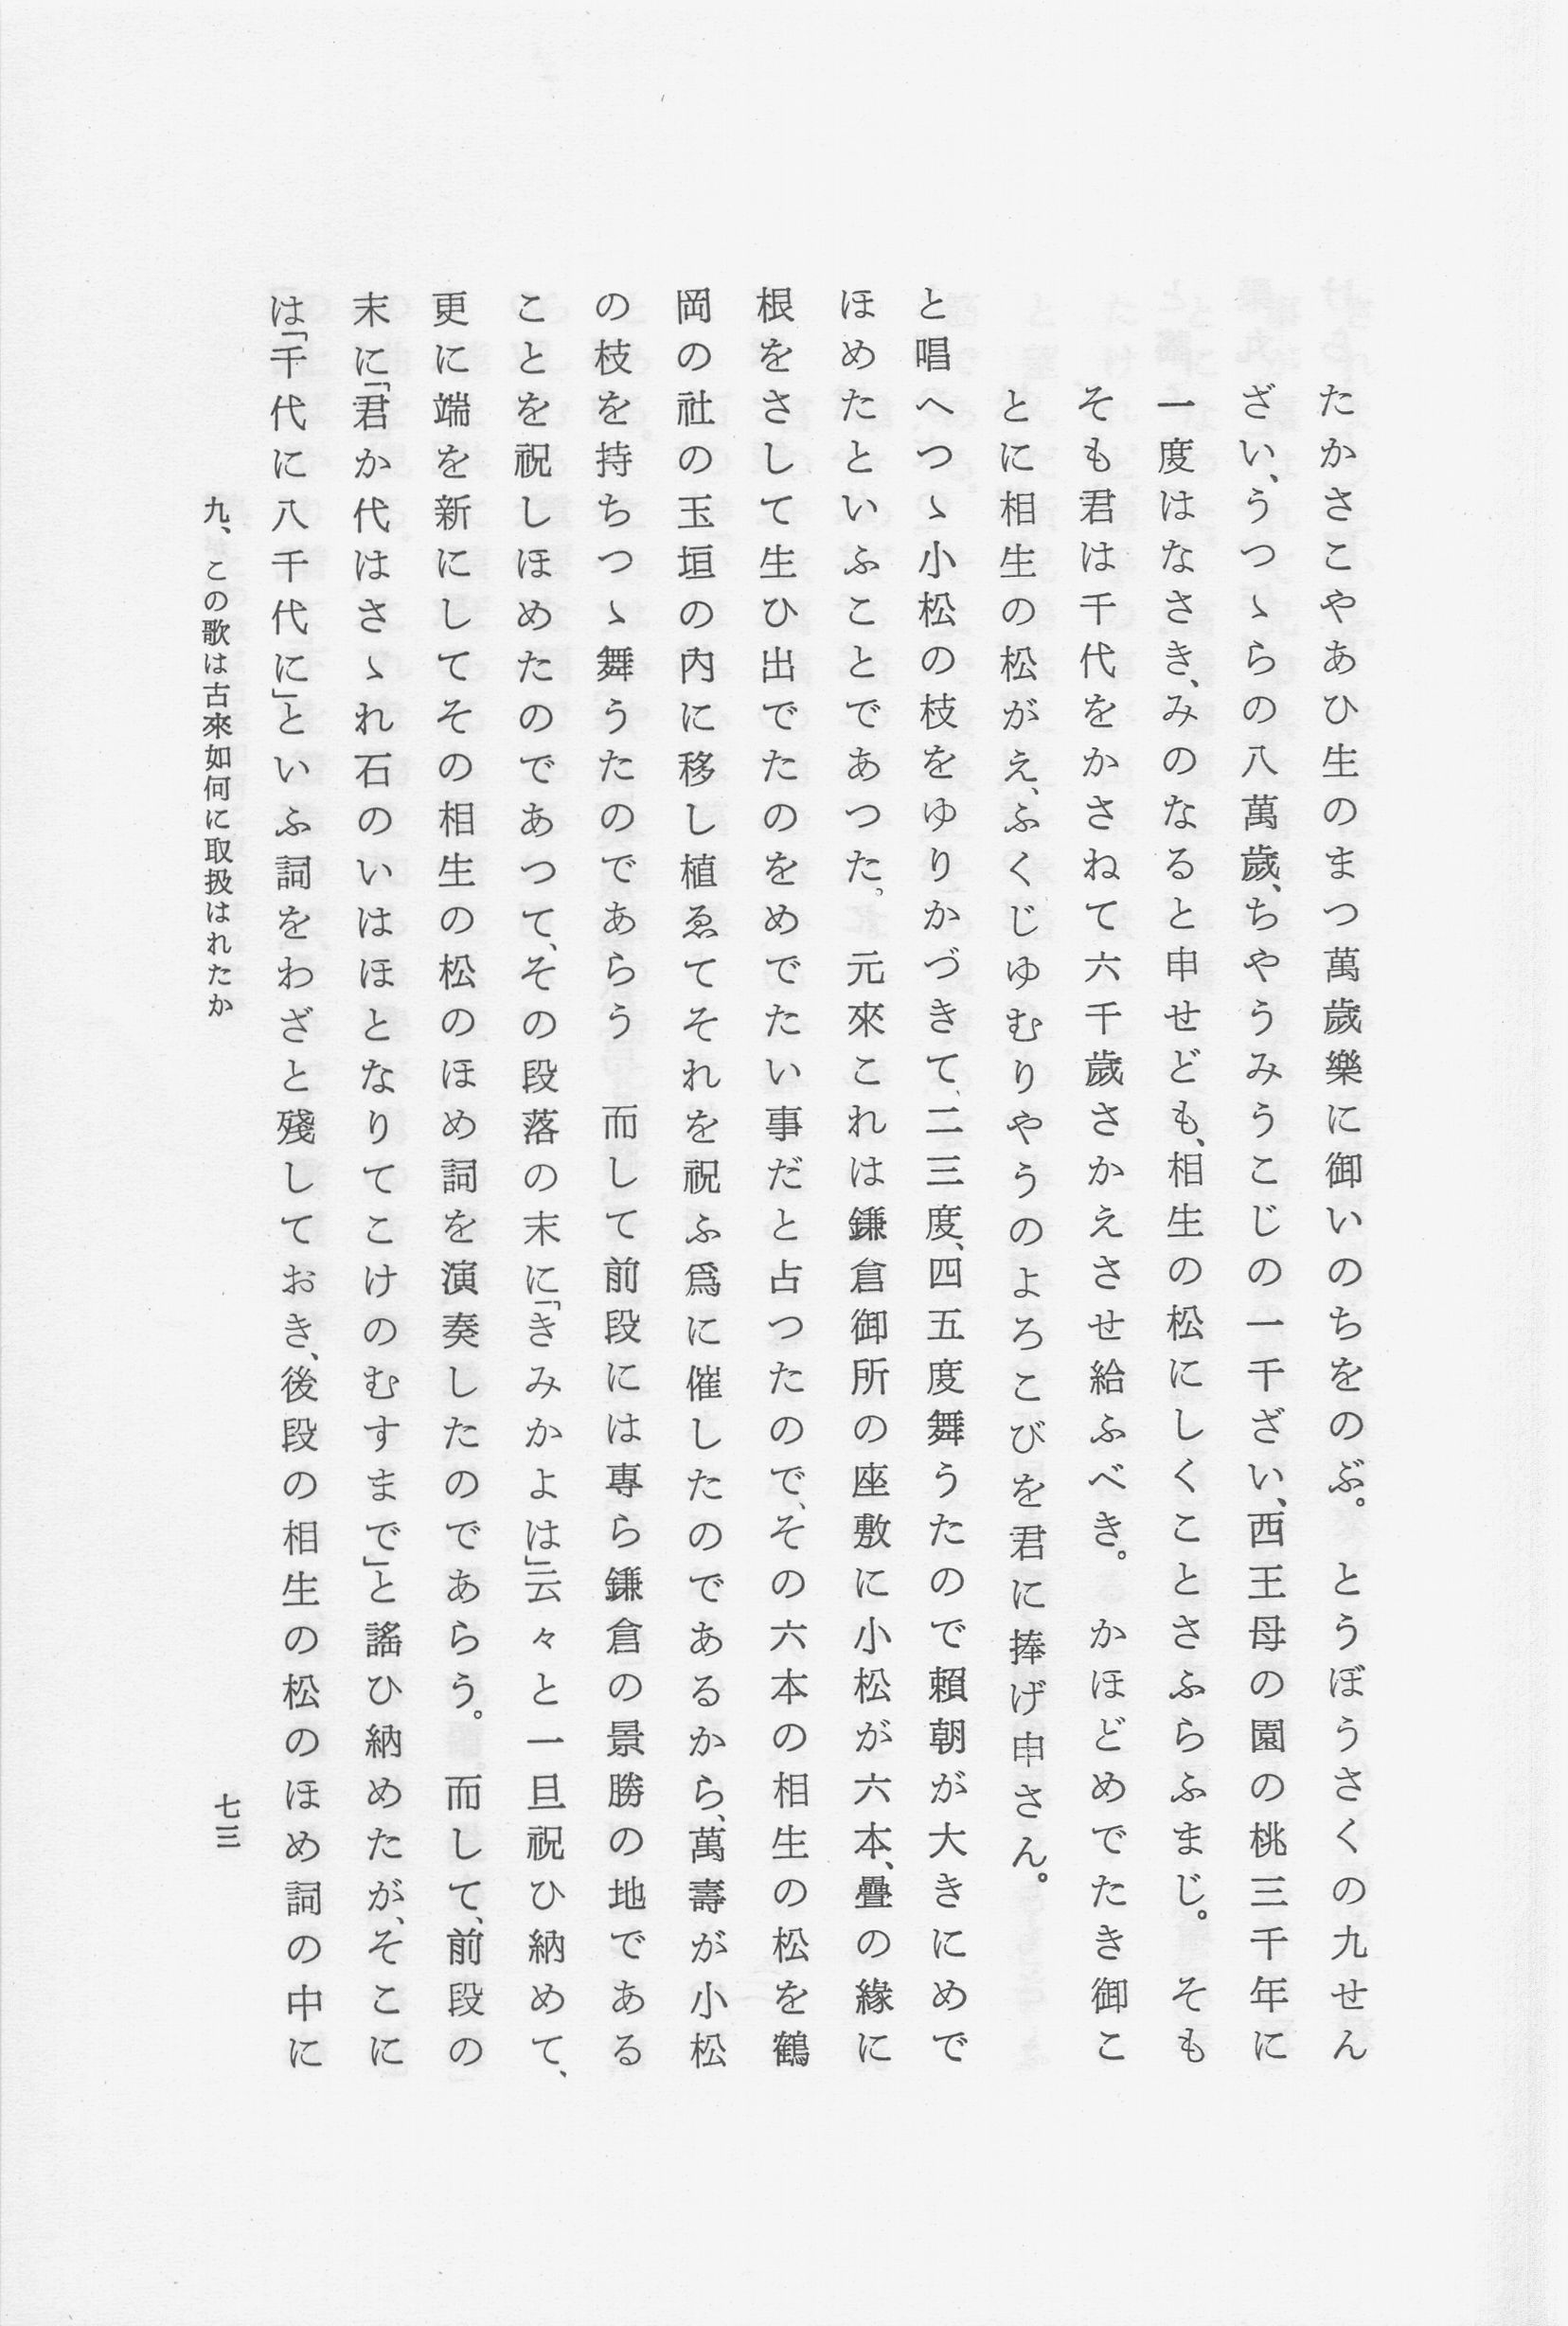 たかさこやあひ生のまつ萬歲樂に御いのちをのぶ。　とうぼうさくの九せん
ざい、うつゝらの八萬歲、ちやうみうこじの一千ざい、西王母の園の桃三千年に
一度はなさき、みのなると申せども、相生の松にしくことさふらふまじ。　そも
そも君は千代をかさねて六千歲さかえさせ給ふべき。　かほどめでたき御こ
とに相生の松がえ、ふくじゆむりやうのよろこびを君に捧げ申さん。
と唱へつゝ小松の枝をゆりかづきて、二三度、四五度舞うたので賴朝が大きにめで
ほめたといふことであつた。　元來これは鎌倉御所の座敷に小松が六本、疊の緣に
根をさして生ひ出でたのをめでたい事だと占つたので、その六本の相生の松を鶴
岡の社の玉垣の內に移し植ゑてそれを祝ふ爲に催したのであるから、萬壽が小松
の枝を持ちつゝ舞うたのであらう　而して前段には專ら鎌倉の景勝の地である
ことを祝しほめたのであつて、その段落の末に「きみかよは」云々と一旦祝ひ納めて、
更に端を新にしてその相生の松のほめ詞を演奏したのであらう。　而して、前段の
末に「君か代はさゝれ石のいはほとなりてこけのむすまで」と謠ひ納めたが、そこに
は「千代に八千代に」といふ詞をわざと殘しておき、後段の相生の松のほめ詞の中に
九、この歌は古來如何に取扱はれたか
七三